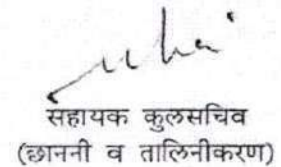 सहायक कुलसचिव
(छाननी व तालिनीकरण)